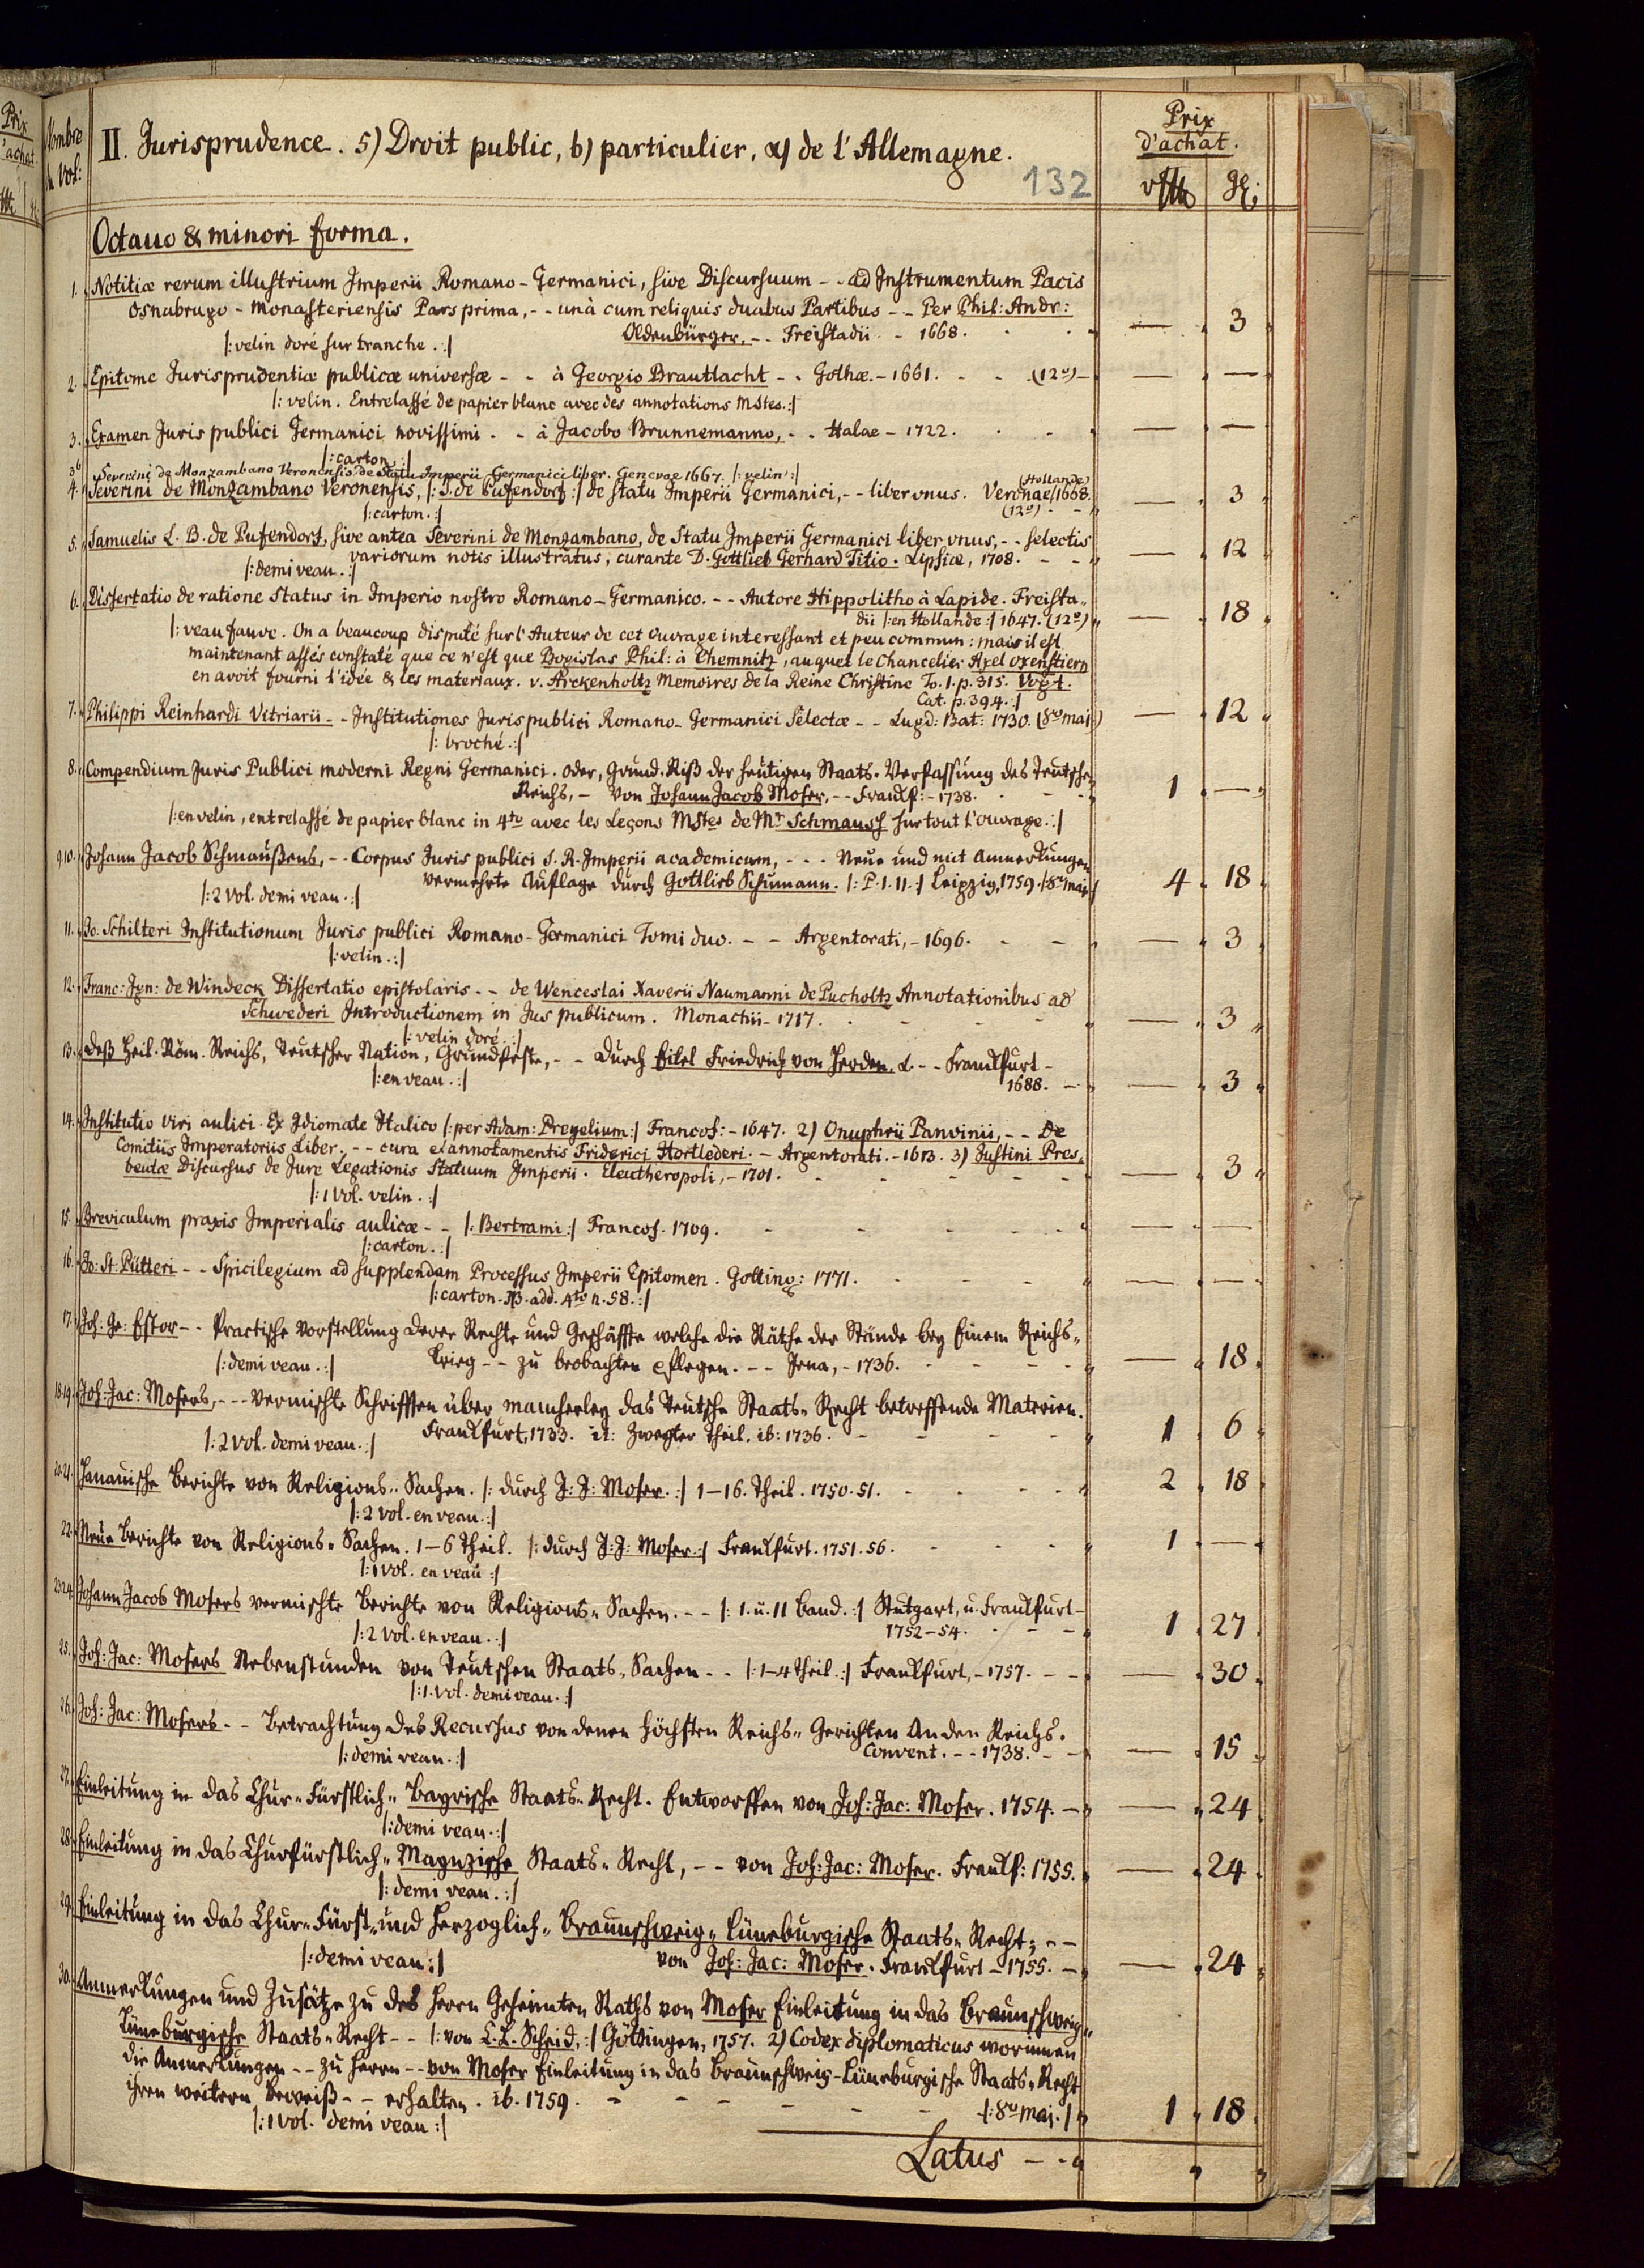 Prix
d'achat.
Nombre
du Vol:
II. Jurisprudence. 5) Droit public, b) particulier, α) de l'Allemagne.
132
Prix
d'achat.
Octauo & minori forma.
1. Notitiæ rerum illustrium Imperii Romano-Germanici, sive Discursuum -- ad Instrumentum Pacis
Osnabrugo-Monasteriensis Pars prima, -- unà cum reliquis duabus Partibus -- Per Phil: Andr:
Oldenbürger, -- Freistadii -- 1668. — 3
|: velin doré sur tranche. :|
2. Epitome Jurisprudentiæ publicæ universæ -- à Georgio Brautlacht -- Gothæ. - 1661. - - (12º) — —
|: velin. Entrelassé de papier blanc avec des annotations MStes. :|
3. Examen Juris publici Germanici novissimi -- à Jacobo Brunnemanno, -- Halae - 1722. — —
|: carton. :|
3b Severini de Monzambano Veronensis de Statu Imperii Germanici liber. Genevae 1667. |: velin :|
4. Severini de Monzambano Veronensis, |: S. de Pufendorf :| de statu Imperii Germanici, -- liber vnus. Veronae (Hollande) 1668. — 3
|: carton. :| (12º)
5. Samuelis L. B. de Pufendorf, sive antea Severini de Monzambano, de Statu Imperii Germanici liber vnus, -- selectis
variorum notis illustratus, curante D. Gottlieb Gerhard Titio. Lipsiæ, 1708. — 12
|: demi veau. :|
6. Dissertatio de ratione Status in Imperio nostro Romano-Germanico. -- Autore Hippolitho à Lapide. Freista-
dii |: en Hollande :| 1647. (12º) — 18
|: veau fauve. On a beaucoup disputé sur l'Auteur de cet Ouvrage interessant et peu commun: mais il est
maintenant assés constaté que ce n'est que Bogislas Phil: à Chemnitz, auquel le Chancelier Axel Oxenstiern
en avoit fourni l'idée & les materiaux. v. Arckenholtz Memoires de la Reine Christine To. 1. p. 315. Vogt.
Cat. p. 394. :|
7. Philippi Reinhardi Vitriarii -- Institutiones Juris publici Romano-Germanici Selectæ -- Lugd: Bat: 1730. (8vo maj.) — 12
|: broché. :|
8. Compendium Juris Publici moderni Regni Germanici. Oder, Grund-Riß der heutigen Staats-Verfassung des Teutschen
Reichs, - von Johann Jacob Moser, -- Franckf: - 1738. 1 —
|: en velin, entrelassé de papier blanc in 4to avec les Leçons MStes de Mr Schmauss sur tout l'ouvrage. :|
9.10. Johann Jacob Schmaußens, -- Corpus Juris publici S. R. Imperii academicum, --- Neue und mit Anmerkungen
vermehrte Auflage durch Gottlieb Schumann. |: P. I. II. :| Leipzig, 1759. |: 8vo maj. 4 18
|: 2 Vol. demi veau. :|
11. Jo. Schilteri Institutionum Juris publici Romano-Germanici Tomi duo. -- Argentorati, - 1696. — 3
|: velin. :|
12. Franc: Ign: de Windeck Dissertatio epistolaris -- de Wenceslai Xaverii Naumanni de Pucholtz Annotationibus ad
Schwederi Introductionem in Jus publicum. Monachii - 1717. — 3
|: velin doré. :|
13. Deß Heil. Röm. Reichs, Teutscher Nation, Grundfeste, -- Durch Eitel Friedrich von Herden. -- Franckfurt -
1688. — 3
|: en veau. :|
14. Institutio Viri aulici. Ex Idiomate Italico |: per Adam: Pregelium :| Francof: - 1647. 2) Onuphrii Panvinii, -- De
Comitiis Imperatoriis Liber, -- cura et annotamentis Friderici Hortlederi. - Argentorati. - 1613. 3) Justini Pres-
beutæ Discursus de Jure Legationis Statuum Imperii. Eleutheropoli, - 1701. — 3
|: 1 Vol. velin. :|
15. Breviculum praxis Imperialis aulicæ -- |: Bertrami :| Francof. 1709. — —
|: carton. :|
16. Jo: St: Pütteri -- Spicilegium ad supplendam Processus Imperii Epitomen. Gotting: 1771. — —
|: carton. NB. add. 4to n. 58. :|
17. Joh: Ge: Estor -- Practische Vorstellung derer Rechte und Geschäffte welche die Räthe der Stände bey Einem Reichs-
krieg -- zu beobachten pflegen. -- Jena, - 1736. — 18
|: demi veau. :|
18.19. Joh: Jac: Mosers, --- Vermischte Schrifften über mancherley das Teutsche Staats-Recht betreffende Materien.
Franckfurt, 1733. it: Zweyter Theil. ib: 1736. 1 6
|: 2 Vol. demi veau. :|
20.21. Hanauische Berichte von Religions-Sachen. |: durch J: J: Moser. :| 1-16. Theil. 1750. 51. 2 18
|: 2 Vol. en veau. :|
22. Neue Berichte von Religions-Sachen. 1-6 Theil. |: durch J: J: Moser :| Franckfurt. 1751. 56. 1 —
|: 1 Vol. en veau :|
23.24. Johann Jacob Mosers vermischte Berichte von Religions-Sachen. -- |: I. u. II Band. :| Stutgart, u. Franckfurt -
1752-54. 1 27
|: 2 Vol. en veau. :|
25. Joh: Jac: Mosers Nebenstunden von Teutschen Staats-Sachen -- |: 1-4 Theil. :| Franckfurt, - 1757. — 30
|: 1. Vol. demi veau. :|
26. Joh: Jac: Mosers -- Betrachtung des Recursus von denen Höchsten Reichs-Gerichten An den Reichs-
Convent. -- 1738. — 15
|: demi veau. :|
27. Einleitung in das Chur-Fürstlich-Bayrische Staats-Recht. Entworffen von Joh: Jac: Moser. 1754. — 24
|: demi veau. :|
28. Einleitung in das Churfürstlich-Maynzische Staats-Recht, -- von Joh: Jac: Moser. Franckf: 1755. — 24
|: demi veau. :|
29. Einleitung in das Chur-Fürst- und Herzoglich-Braunschweig-Lüneburgische Staats-Recht; --
von Joh: Jac: Moser. Franckfurt - 1755. — 24
|: demi veau :|
30. Anmerkungen und Zusätze zu des Herrn Geheimten Raths von Moser Einleitung in das Braunschweig-
Lüneburgische Staats-Recht -- |: von C. L. Scheid, :| Göttingen, 1757. 2) Codex diplomaticus worinnen
die Anmerkungen -- zu Herrn -- von Moser Einleitung in das Braunschweig-Lüneburgische Staats-Recht
ihren weitern Beweiß -- erhalten. ib. 1759. |: 8vo maj. :| 1 18
|: 1 Vol. demi veau :|
Latus --